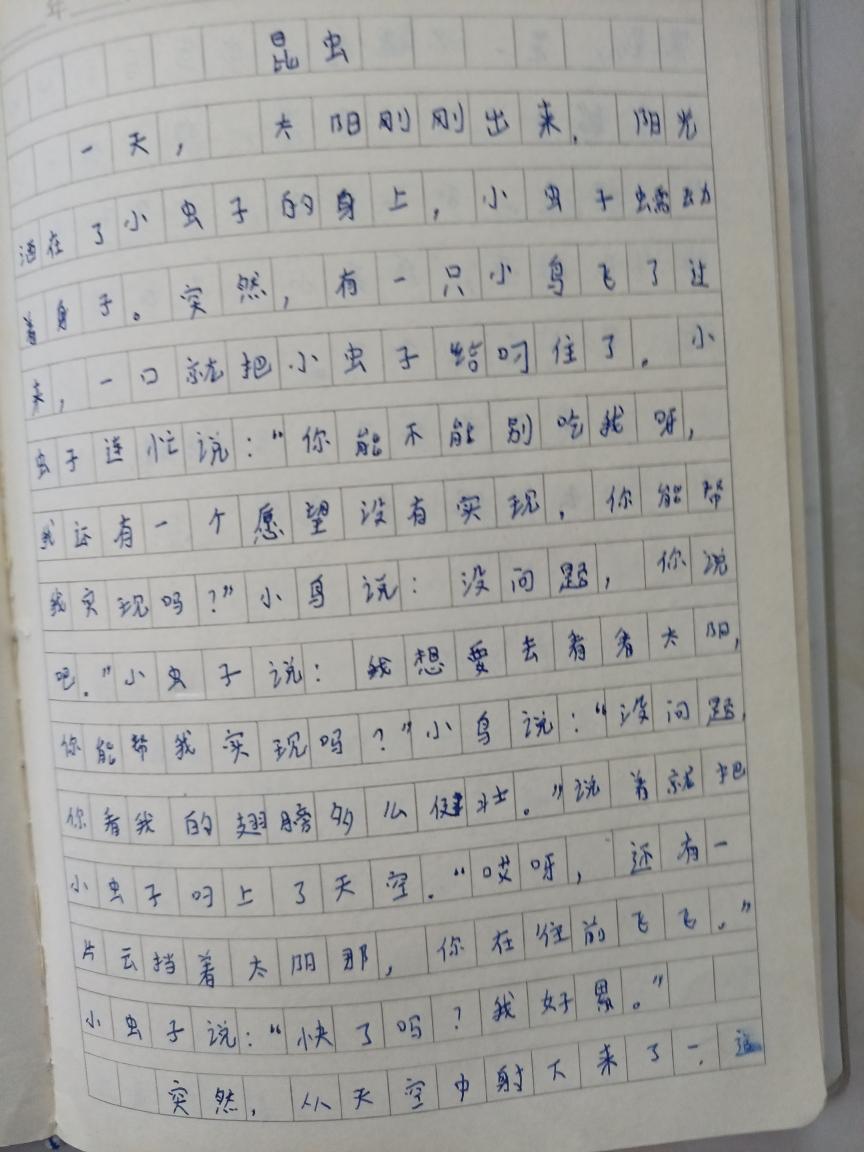 年
昆虫
一天，太阳刚刚出来，阳光
洒在了小虫子的身上，小虫子蠕动
着身子。突然，有一只小鸟飞了过
来，一口就把小虫子给叼住了。小
虫子连忙说：“你能不能别吃我呀，
我还有一个愿望没有实现，你能帮
我实现吗？”小鸟说：没问题，你说
吧。”小虫子说：我想要去看看太阳，
你能帮我实现吗？”小鸟说：“没问题，
你看我的翅膀多么健壮。”说着就把
小虫子叼上了天空。“哎呀，还有一
片云挡着太阳那，你在往前飞飞。”
小虫子说：“快了吗？我好累。”
突然，从天空中射下来了一道